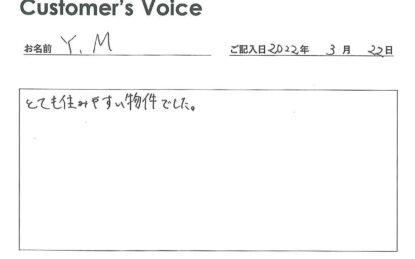 Customer's Voice
お名前 Y.M ご記入日2022年 3月 22日
とても住みやすい物件でした。